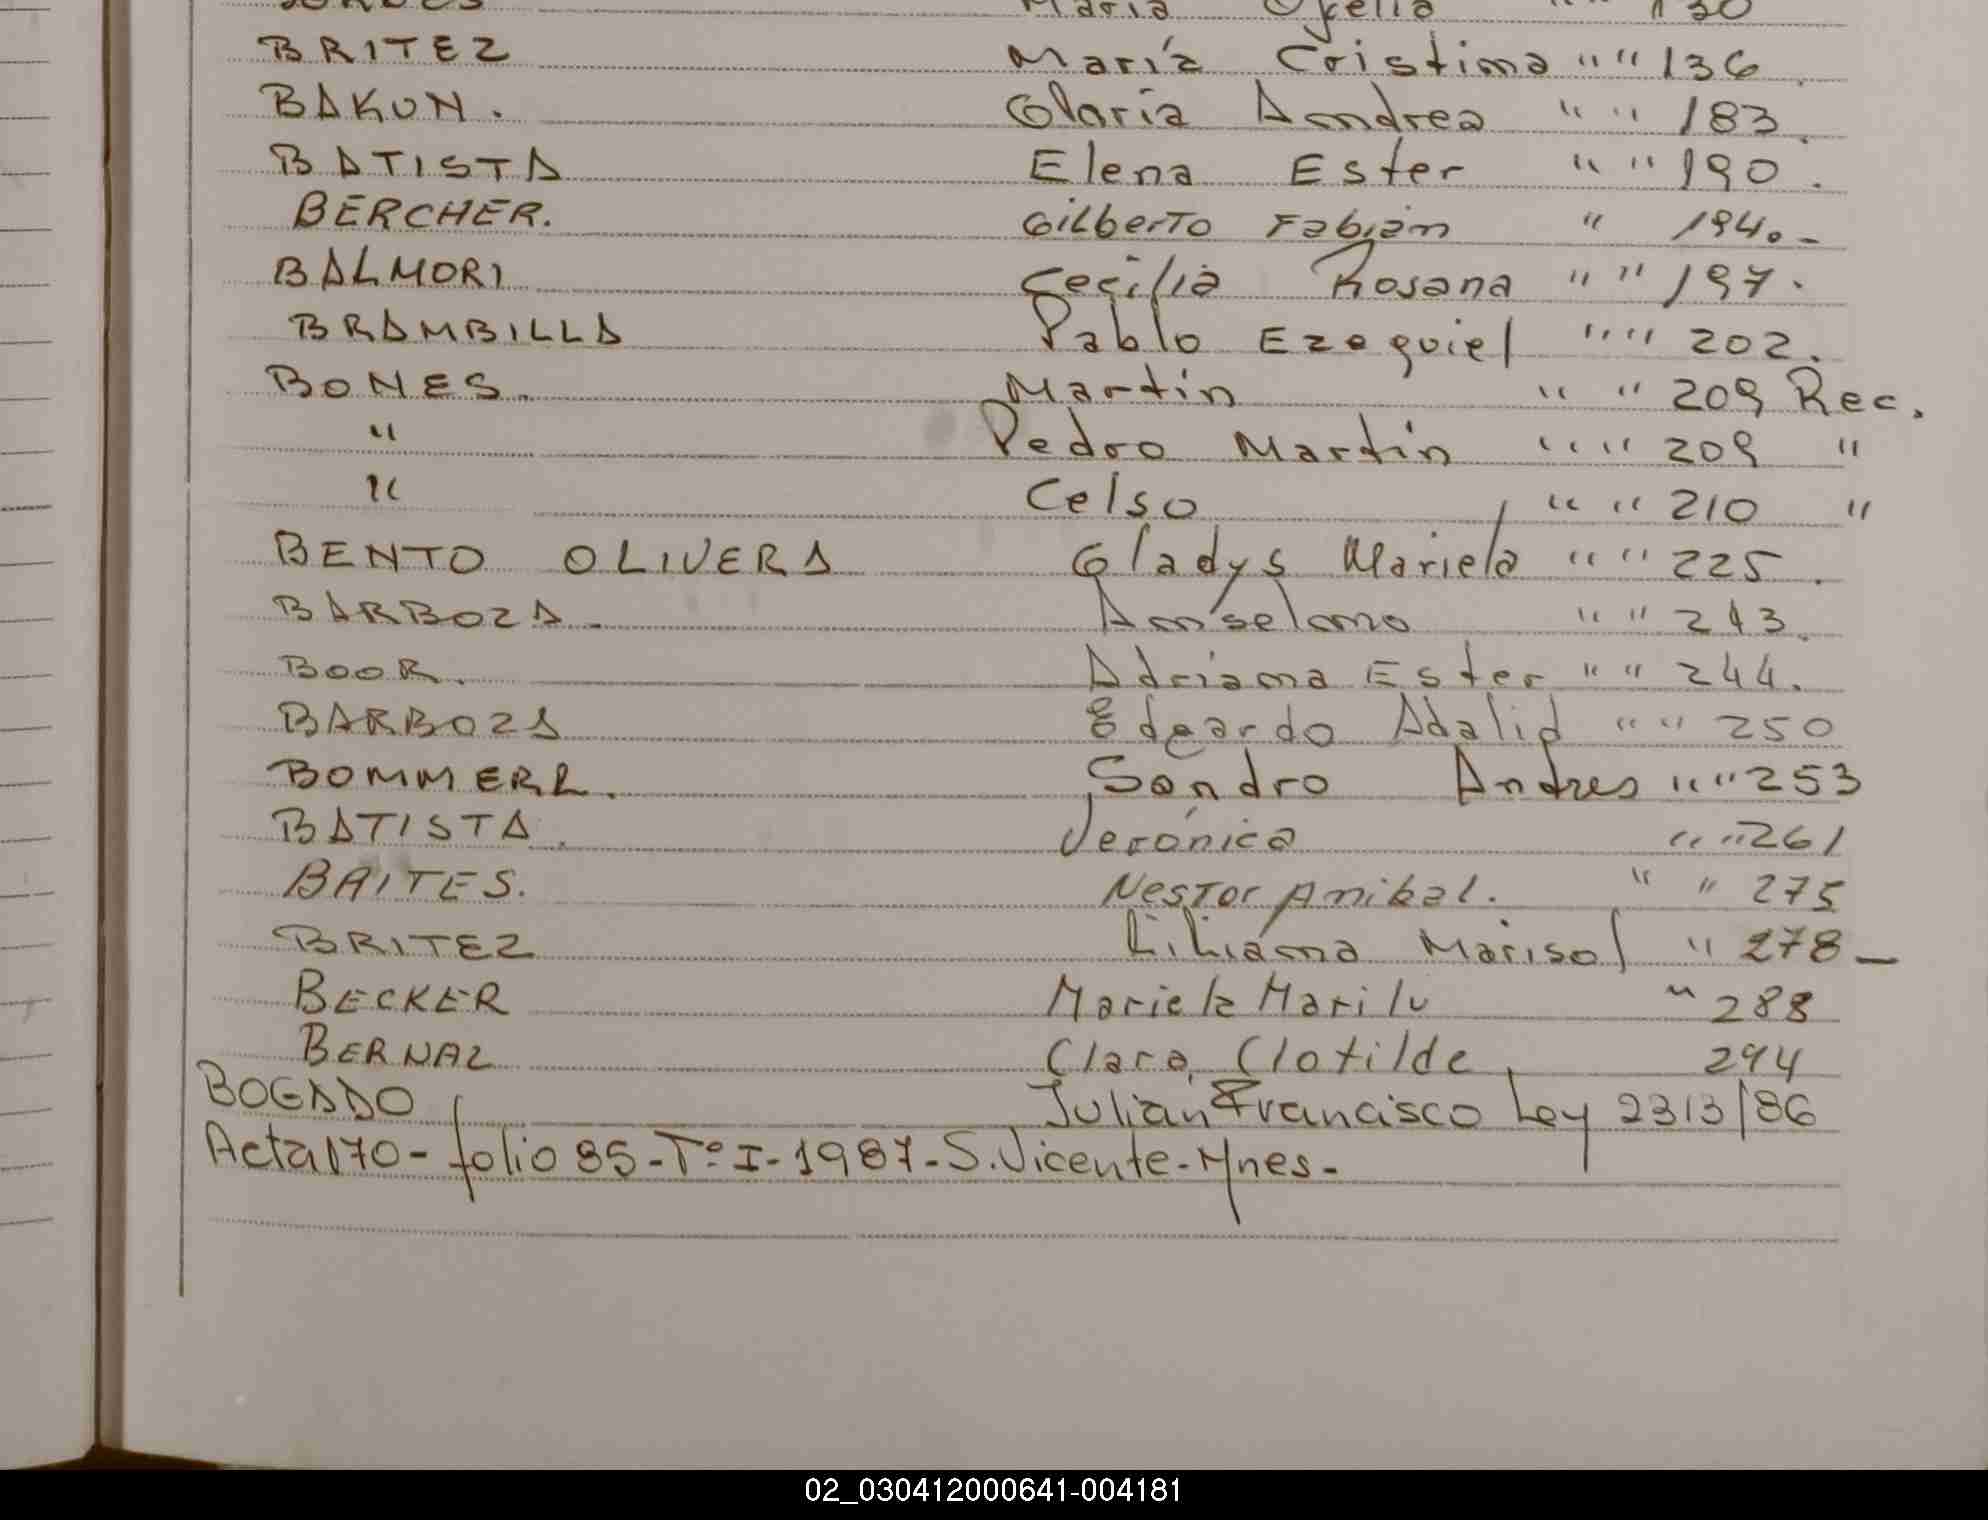 María Ofelia " " 130
BRITEZ María Cristina " " 136
BAKUN. Gloria Andrea " " 183.
BATISTA Elena Ester " " 190.
BERCHER. Gilberto Fabián " 194.-
BALMORI Cecilia Rosana " " 197.
BRAMBILLA Pablo Ezequiel " " 202.
BONES. Martín " " 209 Rec.
" Pedro Martín " " 209 "
" Celso " " 210 "
BENTO OLIVERA Gladys Mariela " " 225.
BARBOZA. Anselmo " " 243.
BOOR. Adriana Ester " " 244.
BARBOZA Edgardo Adalid " " 250
BOMMERR. Sandro Andres " " 253
BATISTA. Verónica " " 261
BAITES. Nestor Anibal. " " 275
BRITEZ Liliana Marisol " 278-
BECKER Mariela Marilu " 288
BERNAL Clara Clotilde 294
BOGADO Julian Francisco Ley 2313/86
Acta 170- folio 85-Tº I-1987-S.Vicente-Mnes-
02_030412000641-004181